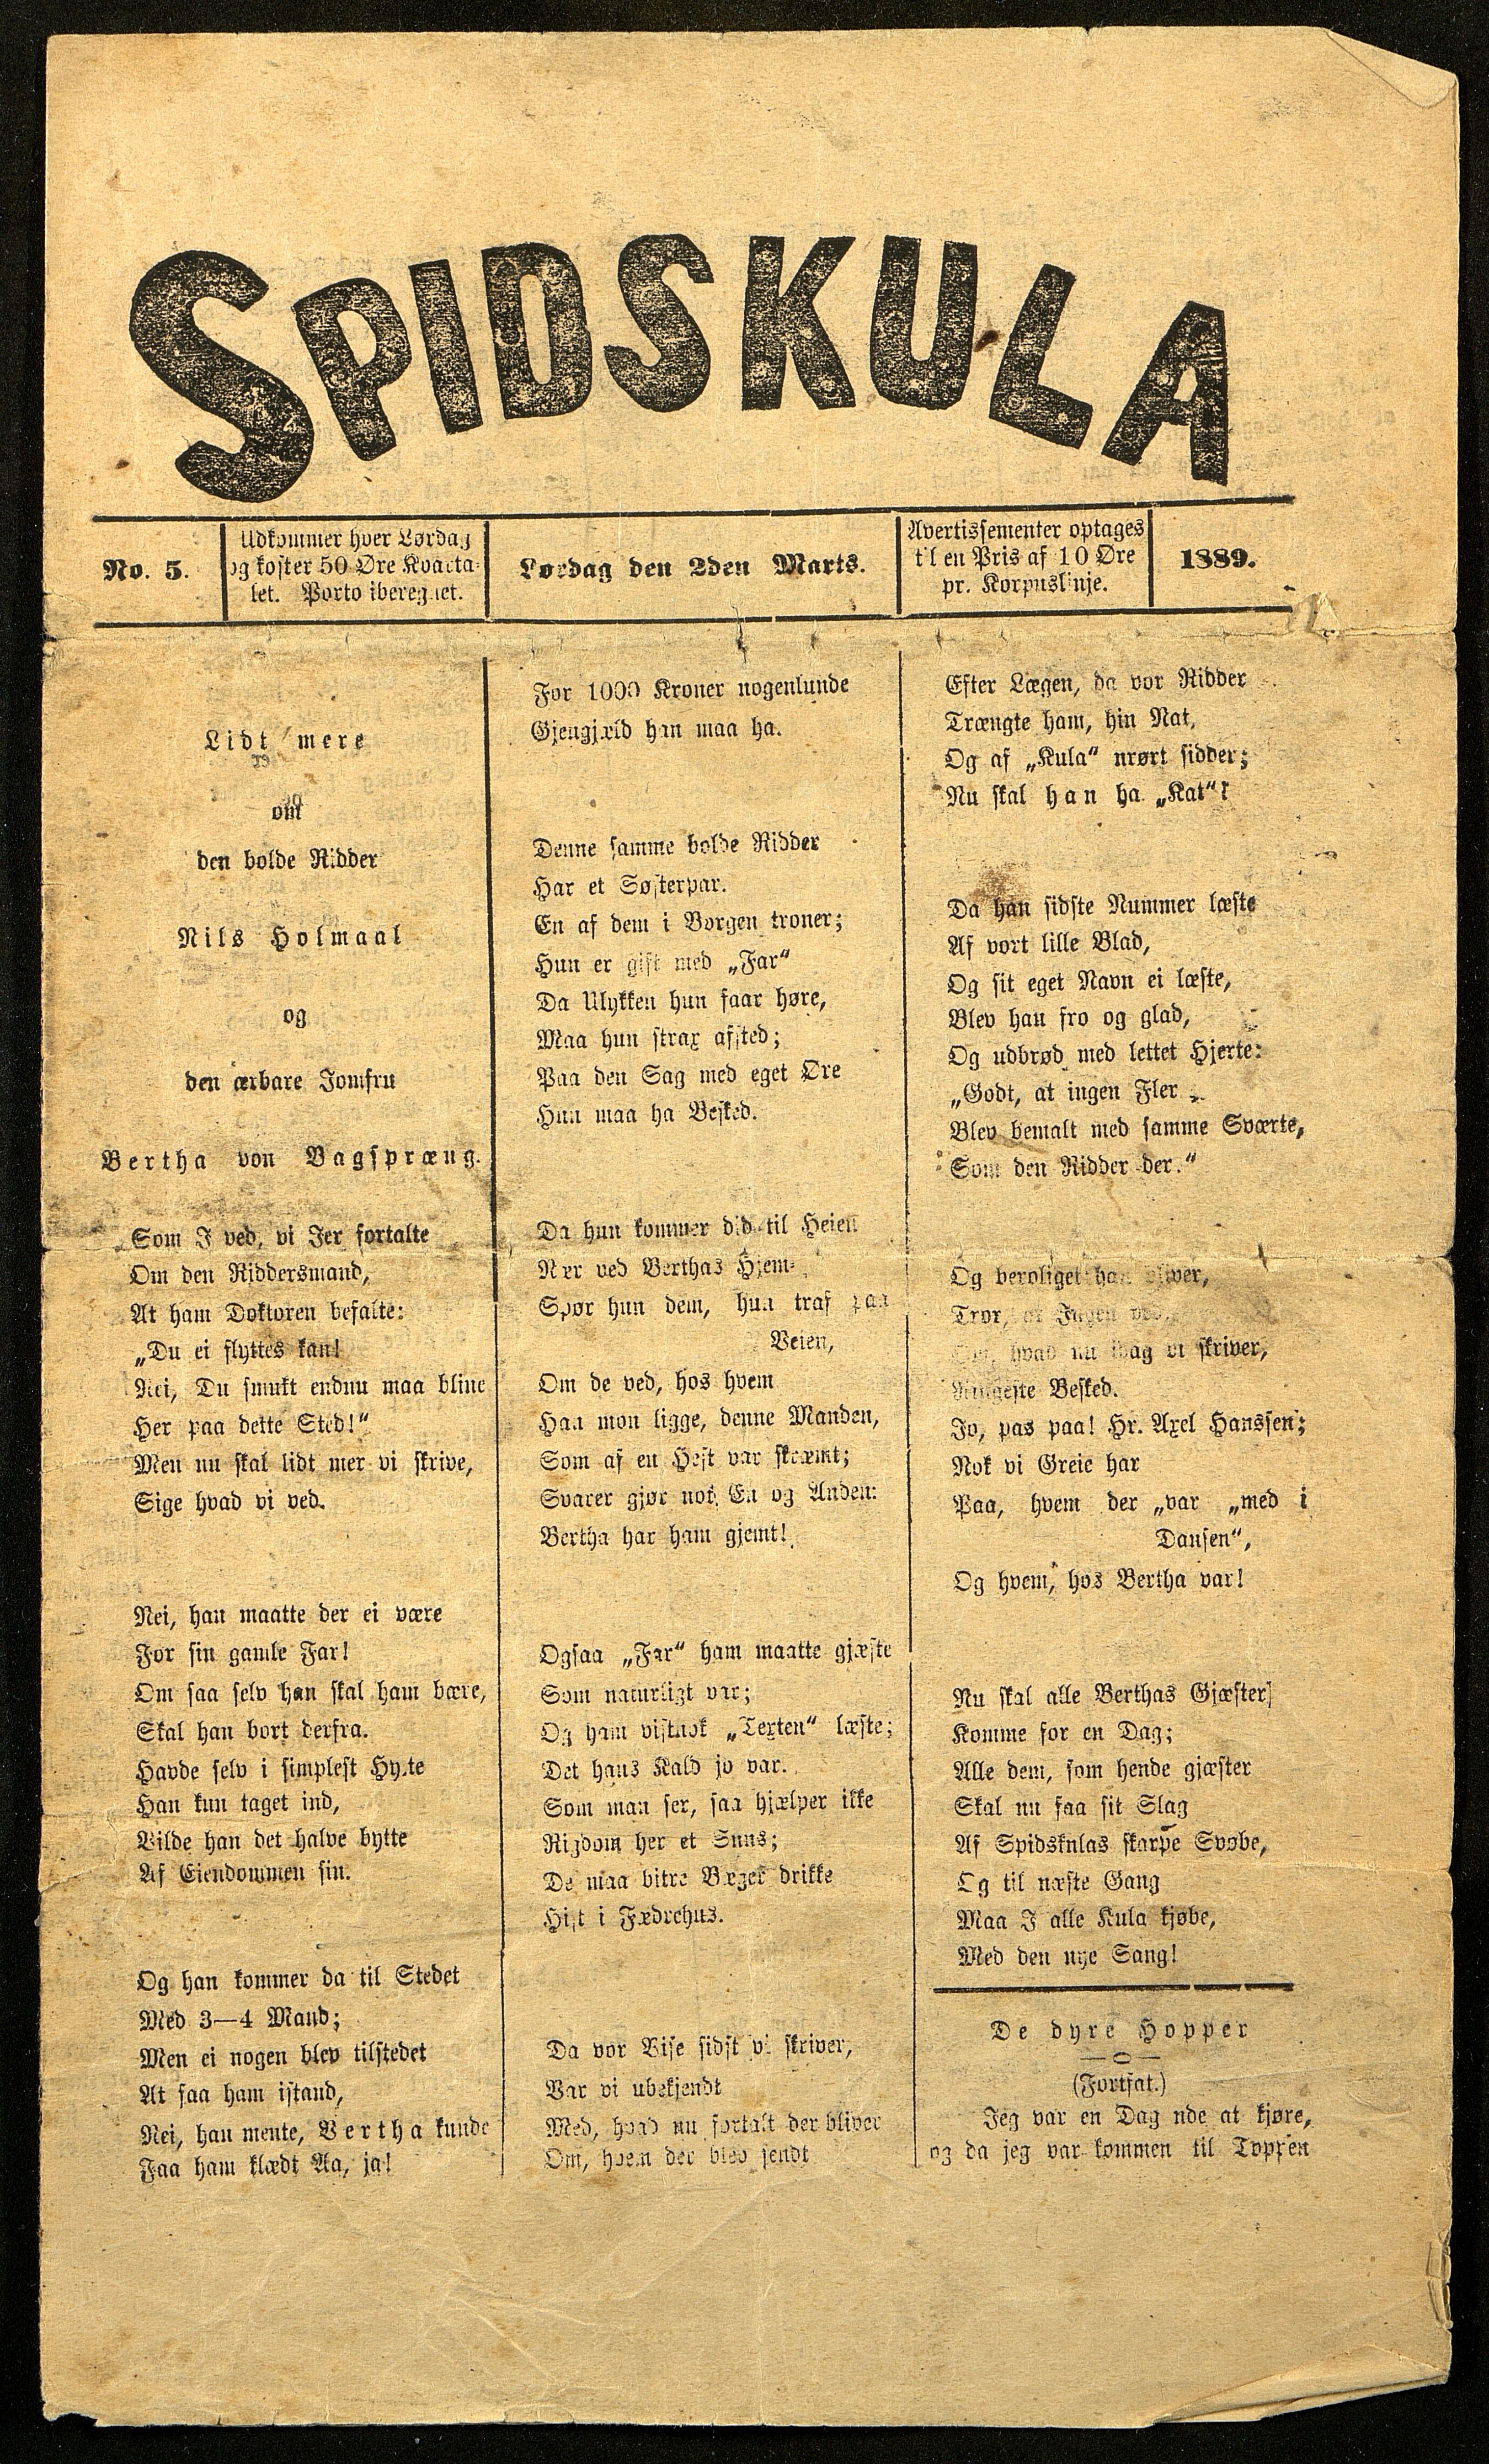 SPIDSKULA
No. 5.
Udkommer hver Lørdag
og koster 50 Øre Kvarta-
let. Porto iberegnet.
Lørdag den 2den Marts.
Avertissementer optages
til en Pris af 10 Øre
pr. Korpuslinje.
1889.
Lidt mere
om
den bolde Ridder
Nils Holmaal
og
den ærbare Jomfru
Bertha von Bagspræng.
Som I ved, vi Jer fortalte
Om den Riddersmand,
At ham Doktoren befalte:
„Du ei flyttes kan!
Nei, Du smukt endnu maa blive
Her paa dette Sted!“
Men nu skal lidt mer vi skrive,
Sige hvad vi ved.
Nei, han maatte der ei være
For sin gamle Far!
Om saa selv han skal ham bære,
Skal han bort derfra.
Havde selv i simplest Hytte
Han kun taget ind,
Vilde han det halve bytte
Af Eiendommen sin.
Og han kommer da til Stedet
Med 3—4 Mand;
Men ei nogen blev tilstedet
At faa ham istand,
Nei, han mente, Bertha kunde
Faa ham klædt Aa, ja!
For 1000 Kroner nogenlunde
Gjengjæld han maa ha.
Denne samme bolde Ridder
Har et Søsterpar.
En af dem i Borgen troner;
Hun er gift med „Far“
Da Ulykken hun faar høre,
Maa hun strax afsted;
Paa den Sag med eget Øre
Hun maa ha Besked.
Da hun kommer did til Heien
Nær ved Berthas Hjem,
Spør hun dem, hun traf paa
Veien,
Om de ved, hos hvem
Han mon ligge, denne Manden,
Som af en Hest var skræmt;
Svarer gjør nok En og Anden:
Bertha har ham gjemt!
Ogsaa „Far“ ham maatte gjæste
Som naturligt var;
Og ham vistnok „Texten“ læste;
Det hans Kald jo var.
Som man ser, saa hjælper ikke
Rigdom her et Snus;
De maa bitre Bæger drikke
Hist i Fædrehus.
Da vor Vise sidst vi skriver,
Var vi ubekjendt
Med, hvad nu fortalt der bliver
Om, hvem der blev sendt
Efter Lægen, da vor Ridder
Trængte ham, hin Nat,
Og af „Kula“ nrørt sidder;
Nu skal han ha „Kat“!
Da han sidste Nummer læste
Af vort lille Blad,
Og sit eget Navn ei læste,
Blev han fro og glad,
Og udbrød med lettet Hjerte:
„Godt, at ingen Fler
Blev bemalt med samme Sværte,
Som den Ridder der.“
Og beroliget han bliver,
Tror, at Ingen ved,
hvad nu idag vi skriver,
Ringeste Besked.
Jo, pas paa! Hr. Axel Hanssen;
Nok vi Greie har
Paa, hvem der „var „med i
Dansen“,
Og hvem, hos Bertha var!
Nu skal alle Berthas Gjæster
Komme for en Dag;
Alle dem, som hende gjæster
Skal nu faa sit Slag
Af Spidsknlas skarpe Svøbe,
Og til næste Gang
Maa I alle Kula kjøbe,
Med den nye Sang!
De dyre Hopper
(Fortsat.)
Jeg var en Dag nde at kjøre,
og da jeg var kommen til Toppen